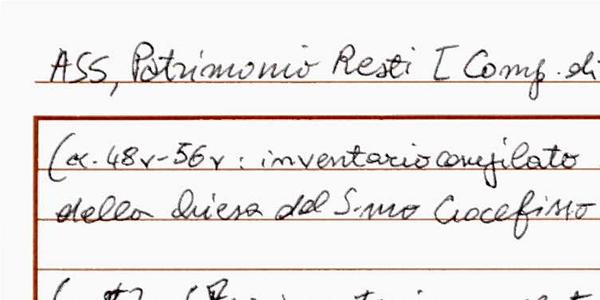 ASS, Patrimonio Resti [Comp. di
(cc. 48v-56v: inventario compilato
della chiesa del S.mo Crocefisso